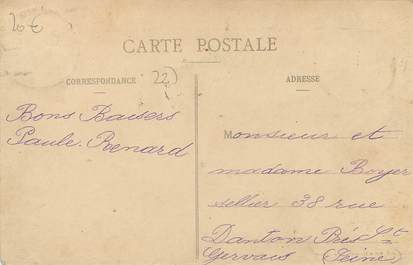 20€
CARTE POSTALE
CORRESPONDANCE
22)
ADRESSE
Bons Baisers
Paule. Renard
Monsieur et
madame Boyer
sellier 38 rue
Danton Prés St
Gervais (Seine)